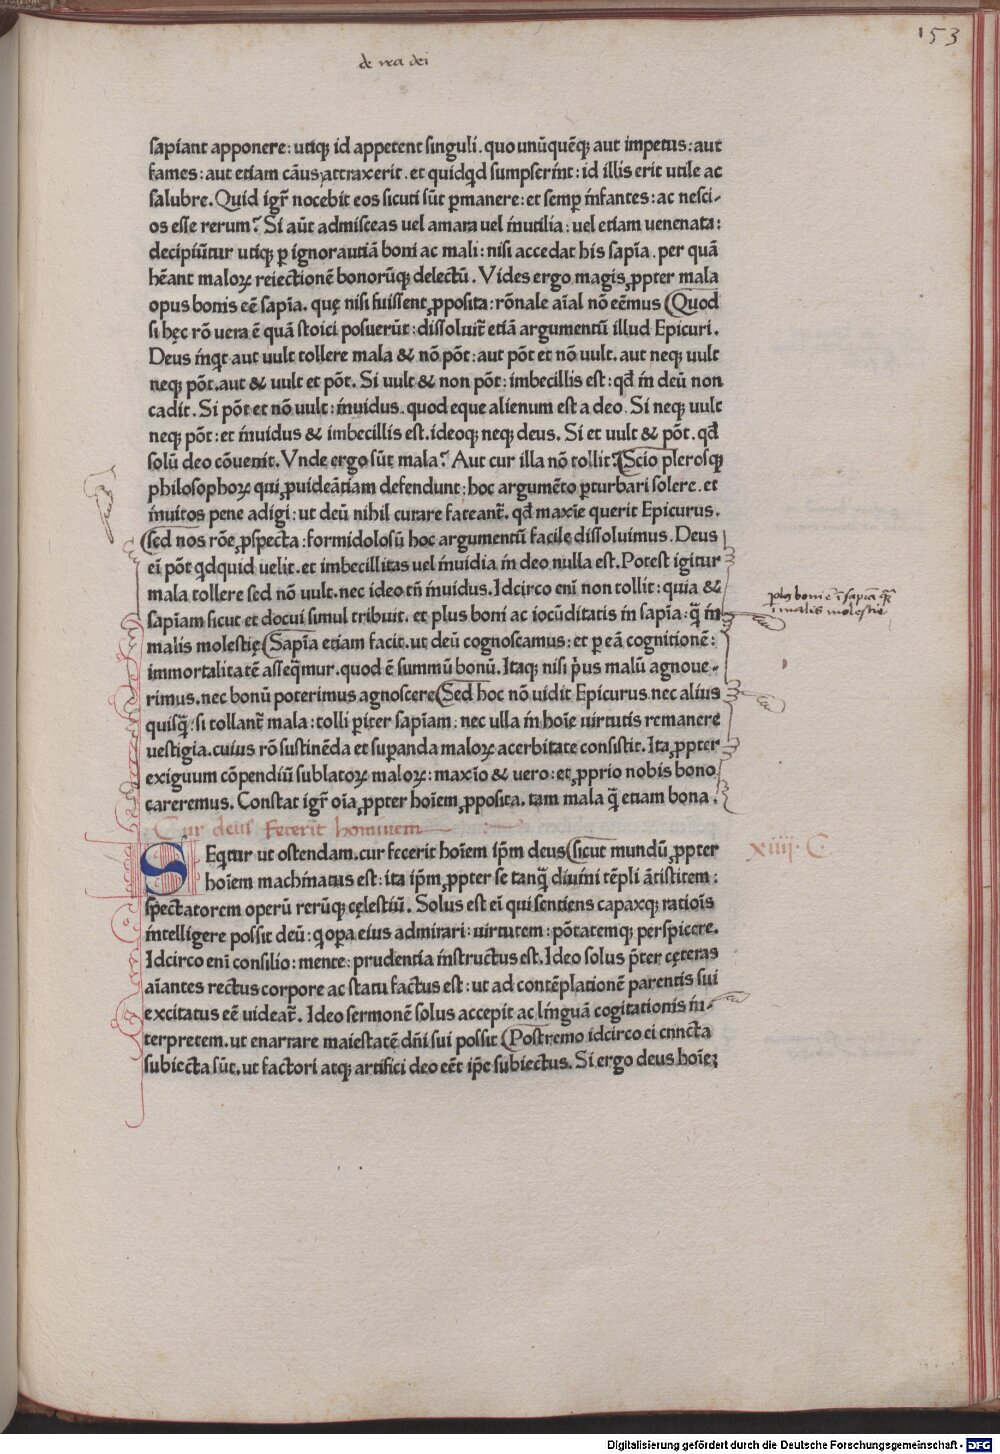 153
de ira dei
sapiant apponere: utiqꝫ id appetent singuli. quo unūquēqꝫ aut impetus: aut
fames: aut etiam cāus attraxerit. et quidqd sumpserīnt: id illis erit utile ac
salubre. Quid igr̄ nocebit eos sicuti sūt ꝑmanere: et semꝑ īnfantes: ac nesci-
os esse rerum? Si aūt admisceas uel amara uel īnutilia: uel etiam uenenata:
decipiūtur utiqꝫ ꝑ ignorautiā boni ac mali: nisi accedat his sapīa. per quā
hēant maloꝝ reiectionē bonorūqꝫ delectū. Vides ergo magis ꝓpter mala
opus bonis eē sapīa. quę nisi fuissent ꝓposita: rōnale aīal nō eēmus (Quod
si hęc rō uera ē quā stoici posuerūt: dissoluit̄ etiā argumentū illud Epicuri.
Deus īnqt aut uult tollere mala & nō pōt: aut pōt et nō uult. aut neqꝫ uult
neqꝫ pōt. aut & uult et pōt. Si uult & non pōt: imbecillis est: qđ īn deū non
cadit. Si pōt et nō uult: īnuidus. quod eque alienum est a deo. Si neqꝫ uult
neqꝫ pōt: et īnuidus & imbecillis est. ideoqꝫ neqꝫ deus. Si et uult & pōt. qđ
solū deo cōuenit. Vnde ergo sūt mala? Aut cur illa nō tollit? (Scio plerosqꝫ
philosophoꝝ qui ꝓuideātiam defendunt: hoc argumēto ꝑturbari solere. et
īnuitos pene adigi: ut deū nihil curare fateant̄. qđ maxīe querit Epicurus.
(sed nos rōe ꝓspecta: formidolosū hoc argumentū facile dissoluimus. Deus
eī pōt qdquid uelit. et imbecillitas uel īnuidia īn deo nulla est. Potest igitur
mala tollere sed nō uult. nec ideo tn̄ īnuidus. Idcirco enī non tollit: quia &
sapīam sicut et docui simul tribuit. et plus boni ac iocūditatis in sapīa: q̄ īn
malis molestię (Sapīa etiam facit. ut deū cognoscamus: et ꝑ eā cognitionē:
immortalitatē asseq̄mur. quod ē summū bonū. Itaqꝫ nisi pꝰus malū agnoue-
rimus. nec bonū poterimus agnoscere (Sed hoc nō uidit Epicurus nec alius
quisq̄: si tollant̄ mala: tolli ꝑiter sapīam: nec ulla īn hoīe uirtutis remanere
uestigia. cuius rō sustinēda et suꝑanda maloꝝ acerbitate consistit. Ita ꝓpter
exiguum cōpendiū sublatoꝝ maloꝝ: maxīo & uero: et ꝓprio nobis bono
careremus. Constat igr̄ oīa ꝓpter hoīem ꝓposita. tam mala q̄ etiam bona.
plꝰ boni ē ī sapīa q̄
ī malis molestie
Cur deus fecerit hominem
xiiij. C.
SEqtur ut ostendam. cur fecerit hoīem ip̄m deus (sicut mundū ꝓpter
hoīem machīnatus est: ita ip̄m ꝓpter se tanq̄ diuīni tēpli ātistitem:
spectatorem operū rerūqꝫ cęlestiū. Solus est eī qui sentiens capaxqꝫ ratiōis
īntelligere possit deū: q opa eius admirari: uirtutem: pōtatemqꝫ perspicere.
Idcirco enī consilio: mente: prudentia īnstructus est. Ideo solus p̄ter cęteras
aīantes rectus corpore ac statu factus est: ut ad contēplationē parentis sui
excitatus eē uideat̄. Ideo sermonē solus accepit ac līnguā cogitationis īn-
terpretem. ut enarrare maiestatē dn̄i sui possit (Postremo idcirco ei cnncta
subiecta sūt. ut factori atqꝫ artifici deo eēt ip̄e subiectus. Si ergo deus hoīeꝫ
Digitalisierung gefördert durch die Deutsche Forschungsgemeinschaft - DFG